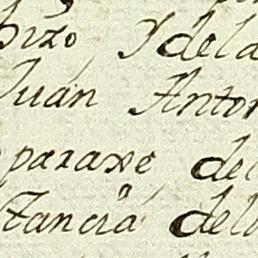 hizo, Y dela
Juan Anton
paraxe del
tancia dela